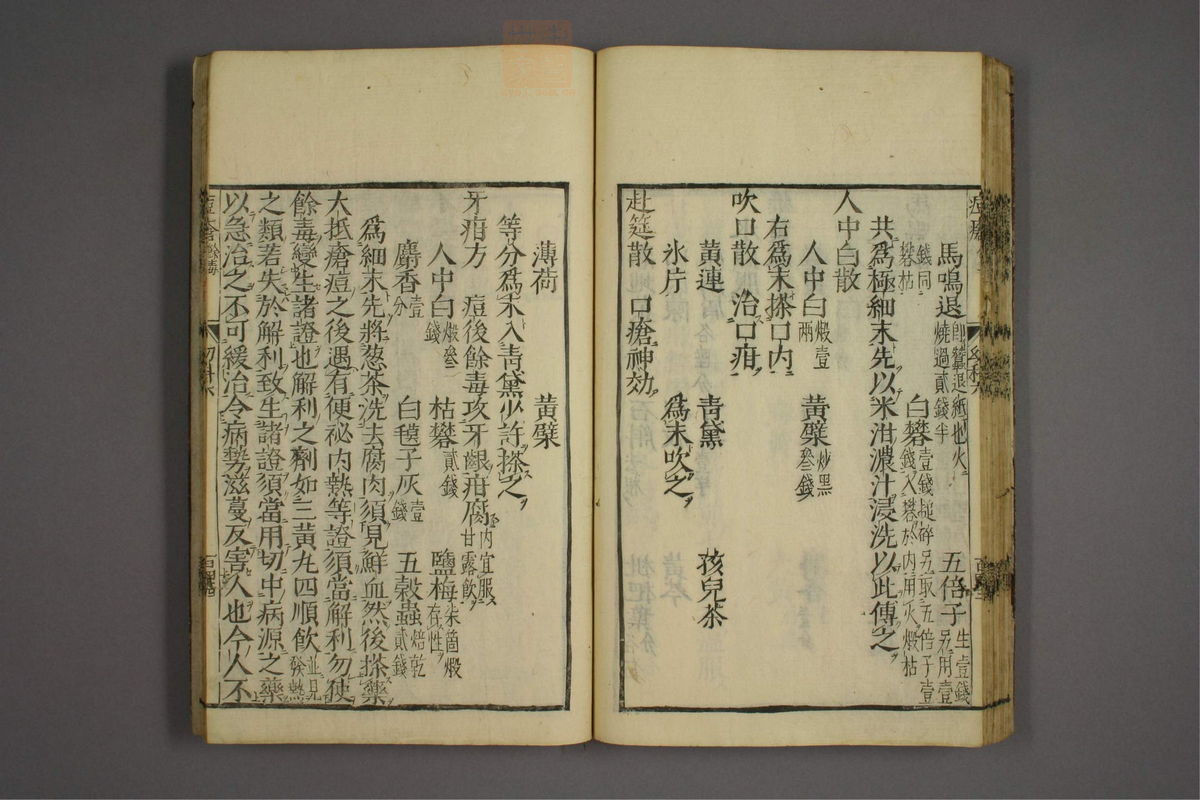 馬鳴退即蠶退紙也火燒過貳錢半　五倍子生壹錢另用壹
錢同礬枯　白礬壹錢搥碎另取五倍子壹錢入礬於內用火煅枯
共爲極細末先以米泔濃汁浸洗以此傅之
人中白散
人中白煅壹兩　黃蘗炒黑叄錢
右爲末搽口內
吹口散　治口疳
黃連　靑黛　孩兒茶
氷片　爲末吹之
赴筵散　口瘡神効
薄荷　黃蘗
等分爲末入靑黛少許搽之
牙疳方　痘後餘毒攻牙齦疳腐內宜服甘露飲
人中白煅叄錢　枯礬貳錢　鹽梅柒箇煅存性
麝香壹分　白氊子灰壹錢　五穀蟲焙乾貳錢
爲細末先將葱茶洗去腐肉須見鮮血然後搽藥
大抵瘡痘之後遇有便祕內熱等證須當解利勿使
餘毒變生諸證也解利之劑如三黃丸四順飲並見發熱
之類若失於解利致生諸證須當用切中病源之藥
以急治之不可緩治令病勢滋蔓反害人也今人不